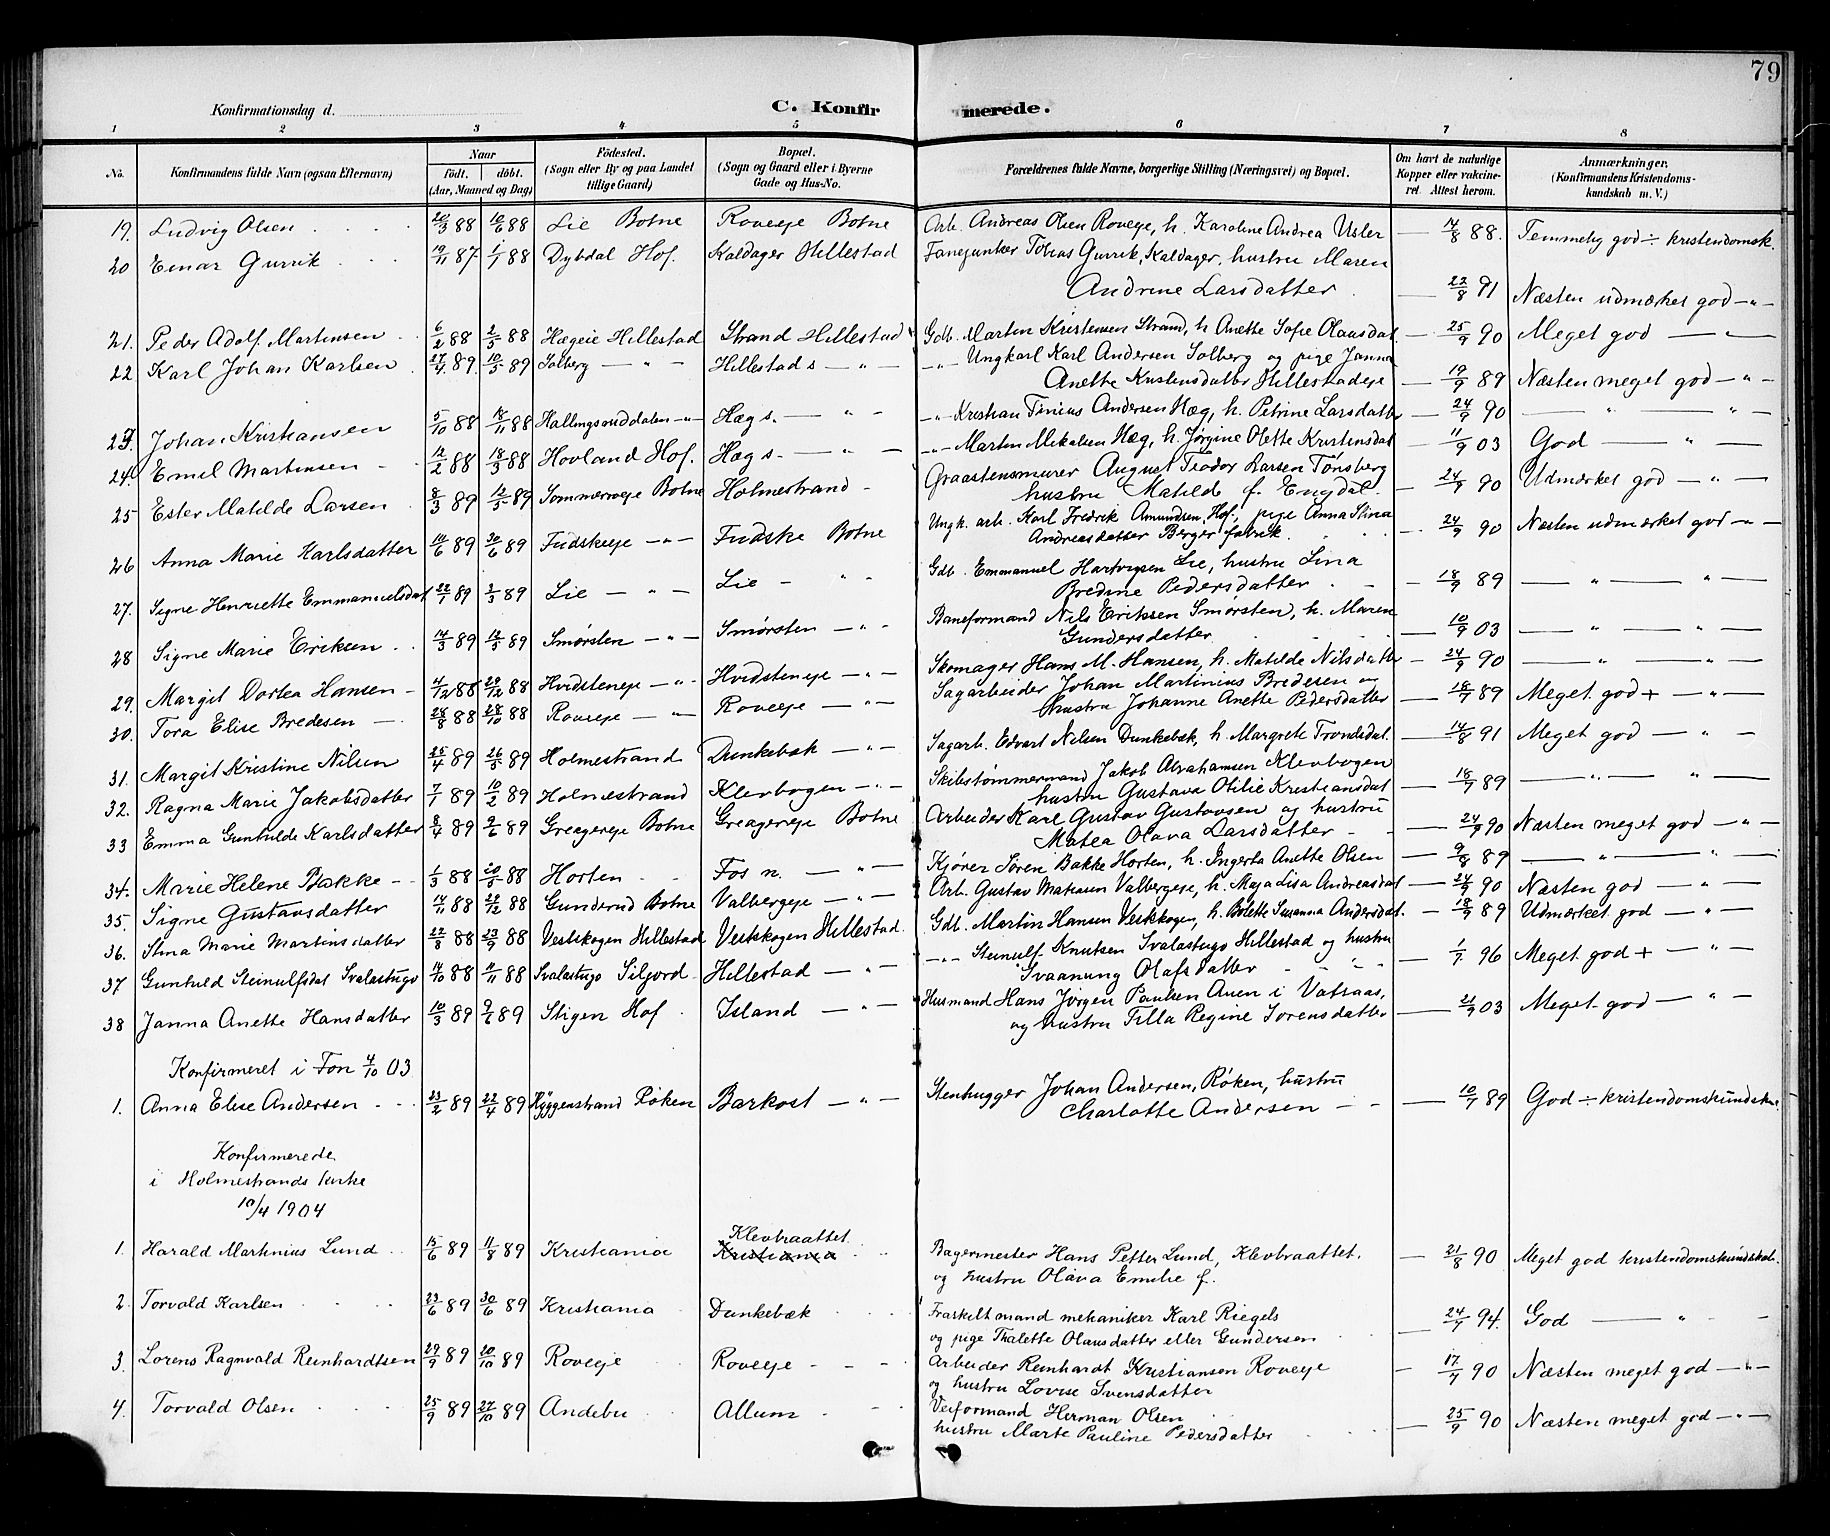 79
Konfirmationsdag d.
C. Konfirmerede.
1 2 3 4 5 6 7 8
No. Konfirmandens fulde Navn (ogsaa Efternavn) Naar født. døbt. (Aar, Maaned og Dag) Fødested. (Sogn eller By og paa Landet tillige Gaard) Bopæl. (Sogn og Gaard eller i Byerne Gade og Hus-No. Forældrenes fulde Navne, borgerlige Stilling (Næringsvei) og Bopæl. Om havt de naturlige Kopper eller vakcineret. Attest herom. Anmærkninger. (Konfirmandens Kristendomskundskab m. V.)
19. Ludvig Olsen 20/3 88 10/6 88 Lie Botne Roveeje Botne Arb. Andreas Olsen Roveeje, h. Karoline Andrea — 14/8 88. Temmelig god ÷ kristendomsk.
20 Einar Gurrik 19/11 87 1/1 88 Dybdal Hof. Kaldager Hillestad Fanejunker Tobias Gurrik, Kaldager, hustru Maren
Andrine Larsdatter — 22/8 91 Næsten udmærket god — " —
21. Peder Adolf Martinsen 6/2 88 2/5 88 Hægeie Hillestad Strand Hillestad Gdb. Martin Kristensen Strand, h. Anette Sofie Olausdat. — 25/9 90 Meget god — " —
22 Karl Johan Karlsen 27/4 89. 10/5 89 Solberg — " — Hillestad s — " — — " — Ungkarl Karl Andersen Solberg og pige Janna
Anette Kristensdatter Hillestadeje — 19/9 89 Næsten meget god — " —
23. Johan Kristiansen 5/10 88 18/11 88 — " — Hæg s. — " — — " — Kristian Tinius Andersen Hæg, h. Petrine Larsdatter — 24/9 90 — " — " —
24. Emil Martinsen 12/2 88 18/3 88 Hovland Hof. Hæg s. — " — — " — Martin Mikalsen Hæg, h. Jørgine Olette Kristensdat — 11/9 03 God — " —
25 Ester Matilde Larsen 8/3 89 12/5 89 Sommerroeje Botne Holmestrand Graastensmurer August Teodor Larsen Tønsberg
hustru Matilde f. Engdal. — 24/9 90 Udmærket god — " —
26 Anna Marie Karlsdatter 14/6 89 30/6 89 Fudskeeje — " — Fudske Botne Ungk. arb. Karl Fredrik Amundsen, Hof, pige Anna Stina
Andreasdatter Berger fabrik. — 24/9 90 Næsten udmærket god — " —
27. Signe Henriette Emmanuelsdat 22/1 89 3/3 89 Lie — " — Lie — " — Gdb. Emmanuel Hartvigsen Lie, hustru Lina
Bredine Pedersdatter — 18/9 89 — " — " —
28 Signe Marie Eriksen 14/3 89 12/5 89 Smørsten — " — Smørsten — " — Baneformand Nils Eriksen Smørsten, h. Maren
Gundersdatter — 10/9 03 — " — " —
29. Margit Dortea Hansen 4/12 88 26/12 88 Hvidsteneje — " — Hvidsteneje — " — Skomager Hans M. Hansen, h. Matilde Nilsdatter — 24/9 90 — " — " —
30. Tora Elise Bredesen 28/8 88 28/10 88 Roveeje — " — Roveeje — " — Sagarbeider Johan Martinius Bredesen og
hustru Johanne Anette Pedersdatter — 18/7 89 Meget god + — " —
31. Margit Kristine Nilsen 25/4 89 26/5 89 Holmestrand Dunkebæk — " — Sagarb. Edvart Nilsen Dunkebæk, h. Margrete Trondsdat. — 14/8 91 Meget god — " —
32. Ragna Marie Jakobsdatter 7/1 89 10/2 89 Holmestrand Klevbogen — " — Skibstømmermand Jakob Abrahamsen Klevbogen
hustru Gustava Otilie Kristiansdat — 18/7 89 — " — " —
33 Emma Gunhilde Karlsdatter 8/4 89 9/6 89 Greagereje Botne Greagereje Botne Arbeider Karl Gustav Gustavsen og hustru
Matea Olava Larsdatter — 24/9 90 Næsten meget god — " —
34. Marie Helene Bakke 1/3 88 20/5 88 Horten Fos n. — " — Kjører Søren Bakke Horten, h. Ingerta Anette Olsen — 9/8 89 — " — " —
35. Signe Gustavsdatter 14/11 88 26/12 88 Gunderud Botne Valbergeje — " — Arb. Gustav Matiasen Valbergeje, h. Maja Lisa Andreasdat — 24/9 90 Næsten god — " —
36. Stina Marie Martinsdatter 22/8 88 23/9 88 Vestskogen Hillestad Vestskogen Hillestad. Gdb. Martin Hansen Vestskogen, h. Bolette Susanna Andersdat. — 18/9 89 Udmærket god — " —
37 Gunhild Steinulfsdat Svalastugo 14/10 88 11/11 88 Svalastugo Siljord Hillestad — " — — " — Steinulf Knutsen Svalastugo Hillestad og hustru
Svaanung Olafsdatter — 1/7 96 Meget god + — " —
38 Janna Anette Hansdatter 10/3 89 9/6 89 Stigen Hof Island — " — Husmand Hans Jørgen Paulsen Auen i Vatsaas,
og hustru Tilla Regine Sørensdatter — 21/9 03 Meget god — " —
Konfirmeret i Fon 4/10 03
1. Anna Elise Andersen 23/2 89 22/4 89 Hyggenstrand Røken Barkost — " — Stenhugger Johan Andersen, Røken, hustru
Charlotte Andersen — 10/7 89 God ÷ kristendomskundsk.
Konfirmerede
i Holmestrands kirke
10/4 1904
1. Harald Martinius Lund 15/6 89 11/8 89 Kristiania Klevbraattet Kristiania Bagermester Hans Petter Lund, Klevbraattet.
og hustru Olava Emilie f. — 21/8 90 Meget god kristendomskundskab.
2. Torvald Karlsen 23/6 89 30/6 89 Kristiania Dunkebæk Fraskilt mand mekaniker Karl Riegels
og pige Thalette Olausdatter eller Gundersen — 24/7 94. God — " —
3. Lorens Ragnvald Reinhardtsen 29/9 89 20/10 89 Roveeje Roveeje Arbeider Reinhardt Kristiansen Roveeje
og hustru Lovise Svensdatter — 17/7 90 Næsten meget god — " —
4. Torvald Olsen 25/9 89 27/10 89 Andebu Allum Veiformand Herman Olsen
hustru Marte Pauline Pedersdatter — 25/9 90 Næsten meget god — " —